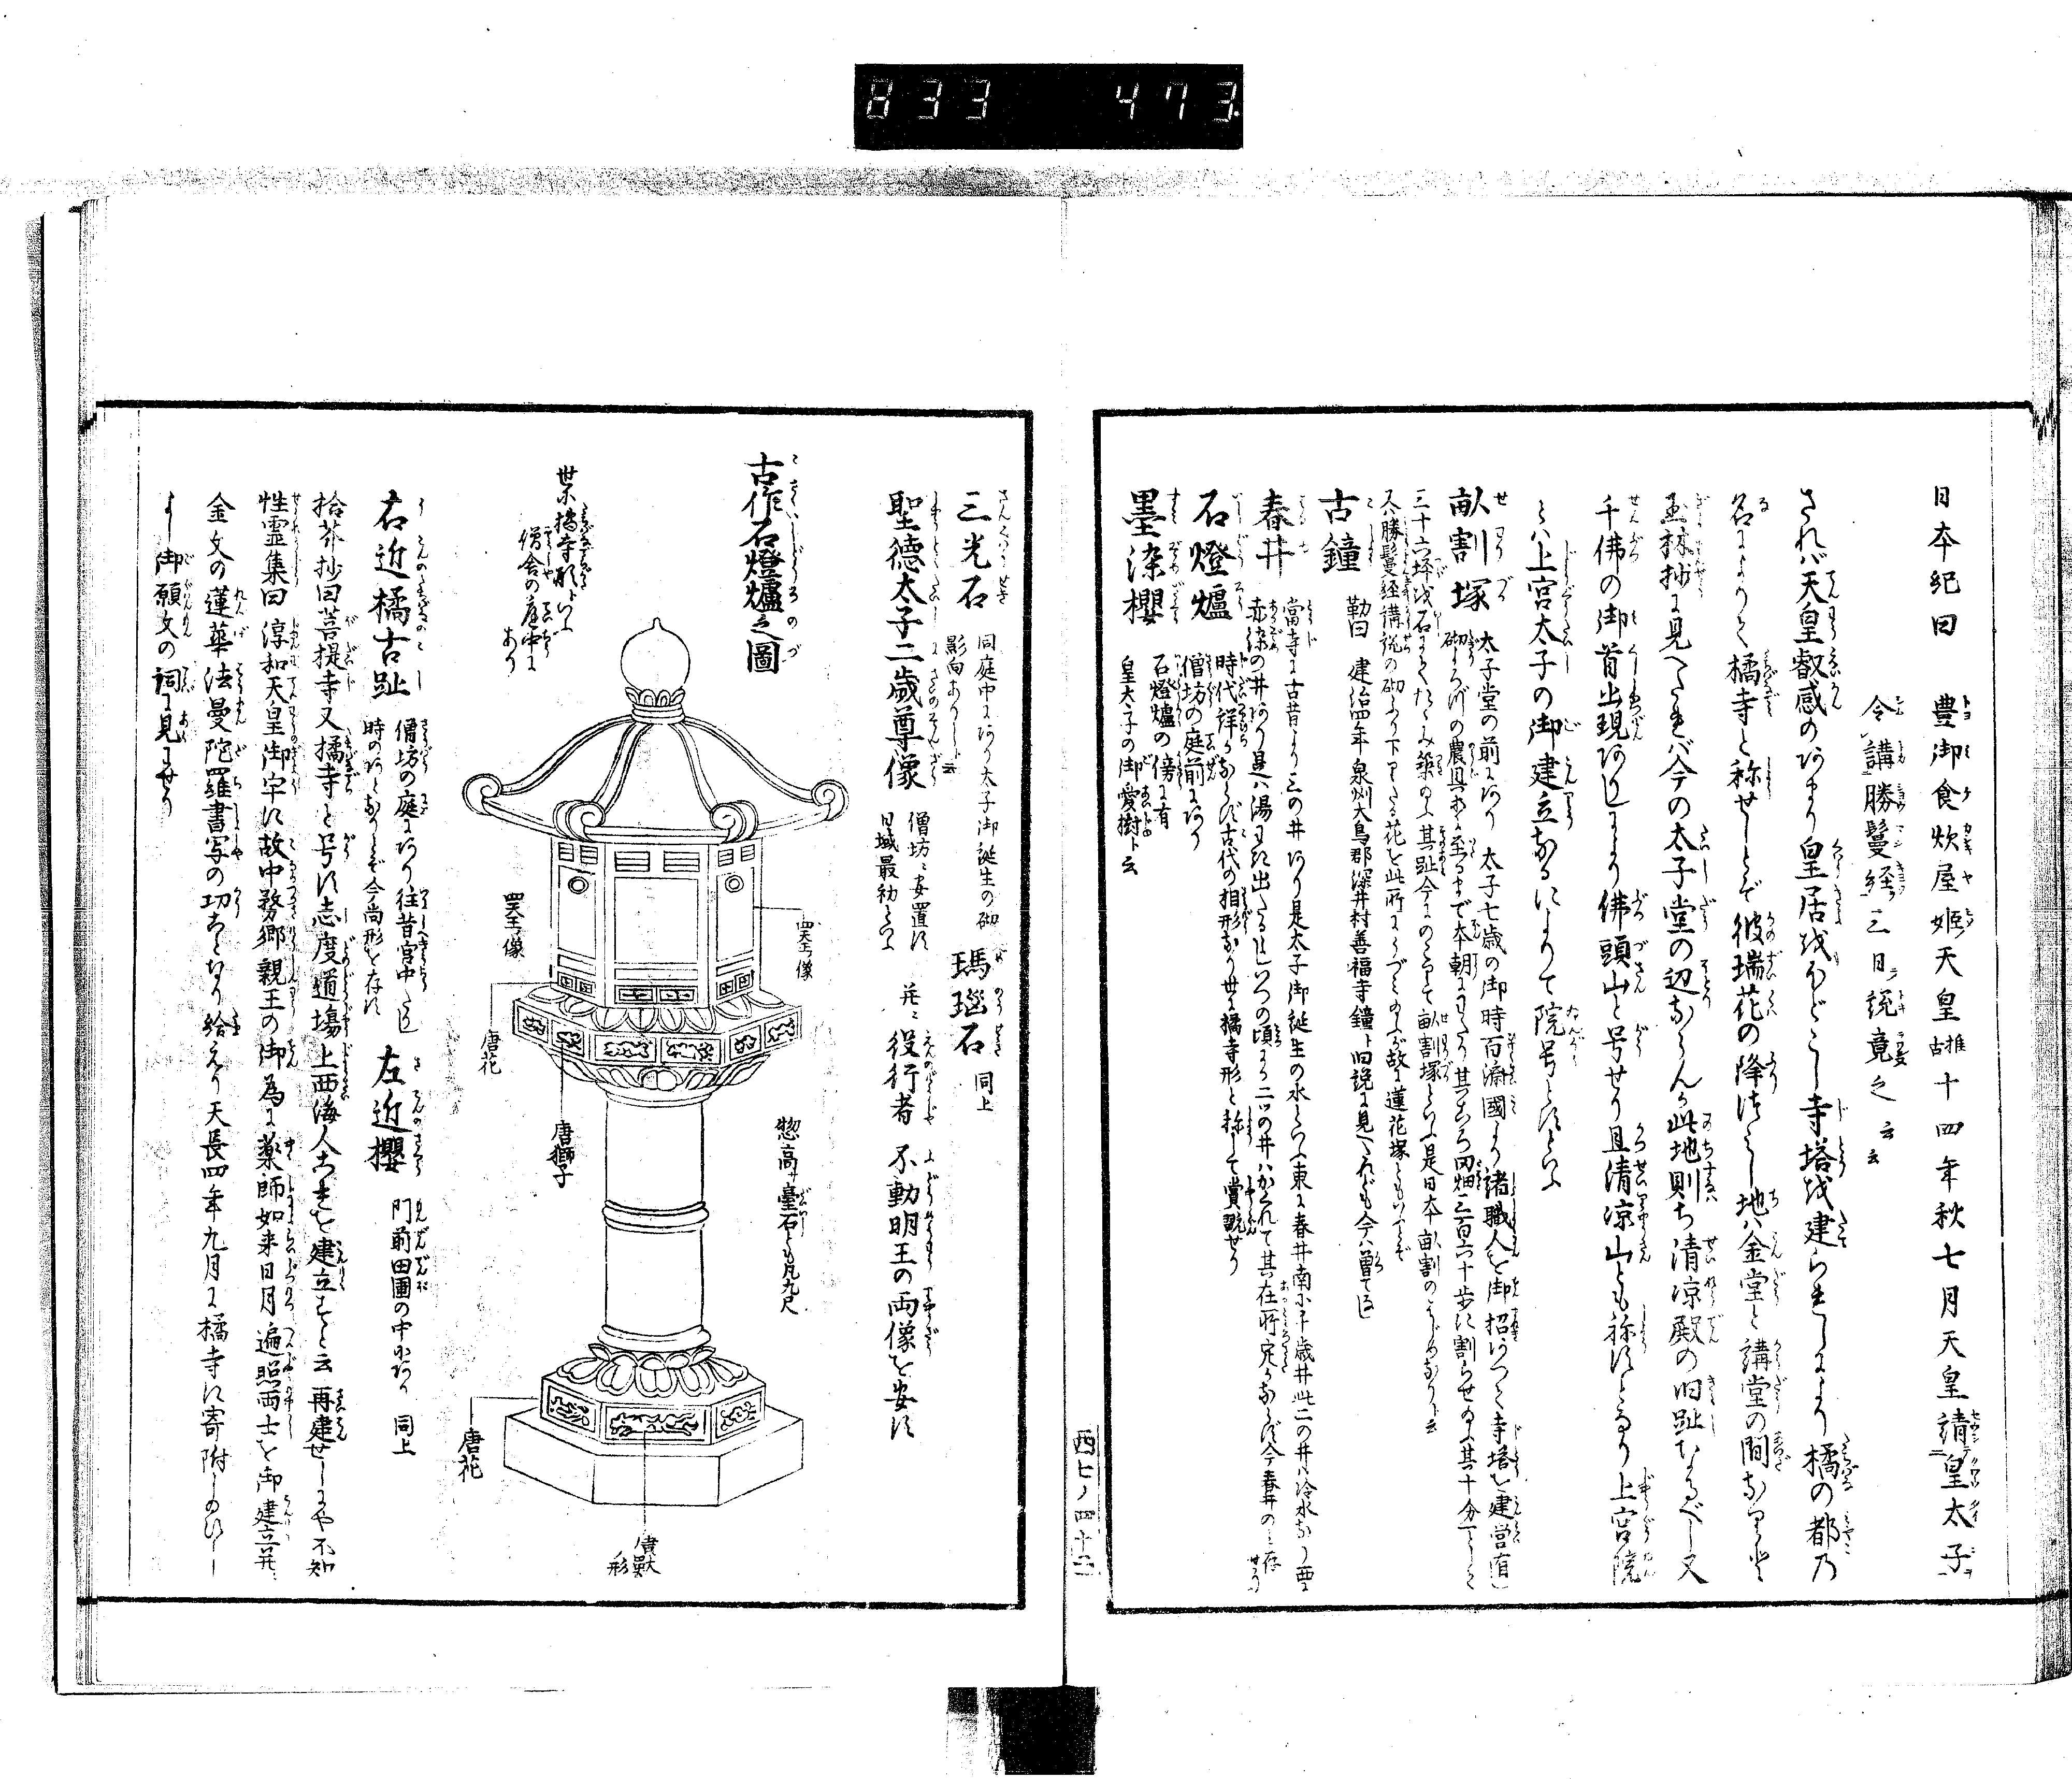 833 473
日本紀曰 豊御食炊屋姫天皇推古十四年秋七月天皇請皇太子
令講勝鬘経三日説竟之云云
されバ天皇叡感のあまり皇居をほどこし寺塔を建られしより橘の都乃
名によりて橘寺と称せしとぞ彼瑞花の降たまし地ハ金堂と講堂の間なりと
玉林抄に見へたれバ今の太子堂の辺ならんか此地則ち清凉殿の旧趾なるべし又
千佛の御首出現ありしより佛頭山と号せり且清凉山とも称すとなり上宮院
とハ上宮太子の御建立なるによりて院号とすといふ
畝割塚 太子堂の前にあり 太子七歳の御時百濟國より諸職人を御招ありて寺塔を建営有し
砌まろげの農具等に至るまで本朝にわたり其ころ田畑三百六十歩に割らせ給ふ其十分一として
三十六坪を石にてたゝみ築給ふ其趾今にのこりて畝割塚といふ是日本畝割のはじめなりト云
又ハ勝鬘経講説の砌ふり下りたる花を此所にうづみ給ふが故に蓮花塚ともいふとぞ
古鐘 勒曰 建治四年泉州大鳥郡深井村善福寺鐘ト旧説に見へたれども今ハ曽てなし
春井 當寺に古昔より三の井あり是太子御誕生の水といふ東に春井南に千歳井此二の井ハ冷水なり西に
赤染の井あり是ハ湯わき出たるにいつの頃より二ツの井ハかくれて其在所定かならず今春井のミ存せり
石燈爐 時代詳ならず古代の相形なり世に橘寺形と称して賞翫せり
僧坊の庭前にあり
墨染櫻 石燈爐の傍に有
皇太子の御愛樹ト云
西七ノ四十二
三光石 同庭中にあり太子御誕生の砌
影向ありしト云
瑪瑙石 同上
聖徳太子二歳尊像 僧坊に安置す
日域最初といふ
并に 役行者 不動明王の両像を安す
古作石燈爐之圖
世に橘寺形といふ
僧舎の庭中に
あり
四天王像
四天王像
唐花
唐獅子
惣高サ臺石とも凡九尺
唐花
獣形
右近橘古趾 僧坊の庭にあり往昔宮中なりし
時のあとなりとぞ今尚形を存す
左近櫻 門前田圃の中にあり 同上
拾芥抄曰菩提寺又橘寺と号す志度道場上西海人これを建立すと云 再建せしにや不知
性霊集曰 淳和天皇御宇に故中務卿親王の御為に薬師如来日月遍照両士を御建立并
金文の蓮華法曼陀羅書写の功おこなり給えり天長四年九月に橘寺に寄附したまひし
よし御願文の詞に見えたり